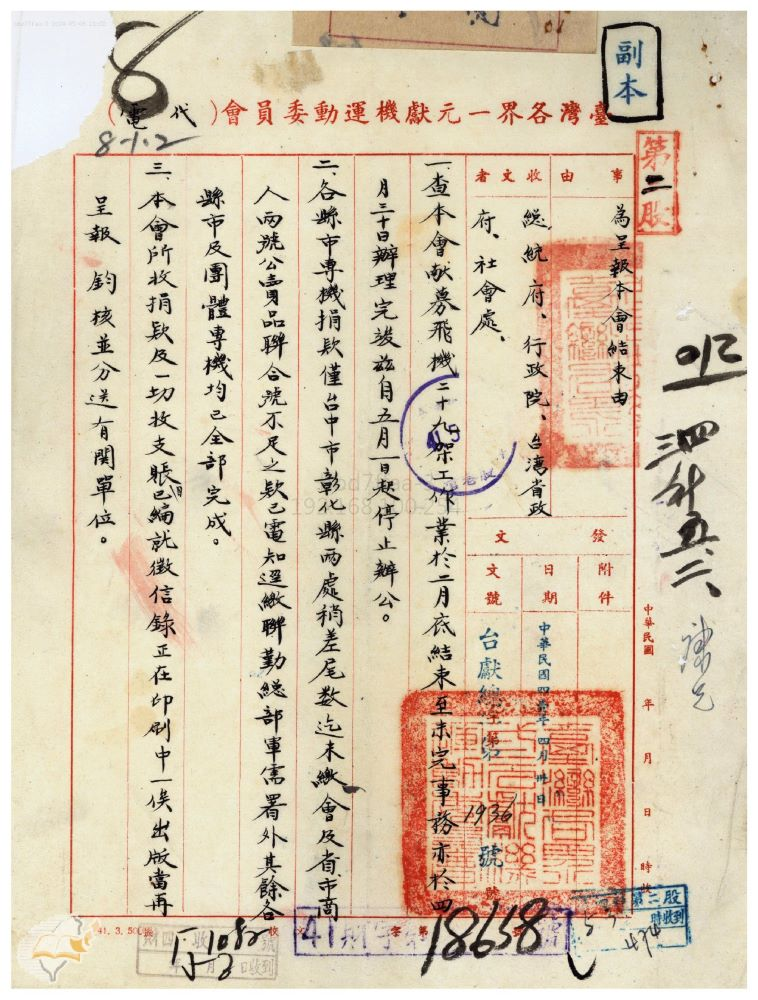 副本
臺灣各界一元獻機運動委員會(代電)
8-1.2
第二股
事由
為呈報本會結束由
收文者
總統府、行政院、台灣省政
府、社會處、
發文
附件
日期
中華民國四十一年四月卅日
文號
台獻總字第1936號
一、查本會献募飛機二十九架工作業於二月底結束至未完事務亦於四
月三十日辦理完竣茲自五月一日起停止辦公。
二、各縣市專機捐欵僅台中市彰化縣兩處稍差尾数迄未繳會及省市商
人兩號公賣品聯合號不足之欵已電知逕繳聯勤總部軍需署外其餘各
縣市及團體專機均已全部完成。
三、本會所收捐欵及一切收支賬目已編就徵信錄正在印刷中一俟出版當再
呈報 鈞核並分送有關單位。
中華民國 年 月 日 時
41.3.500
18658
1082
第二股
時收到
494